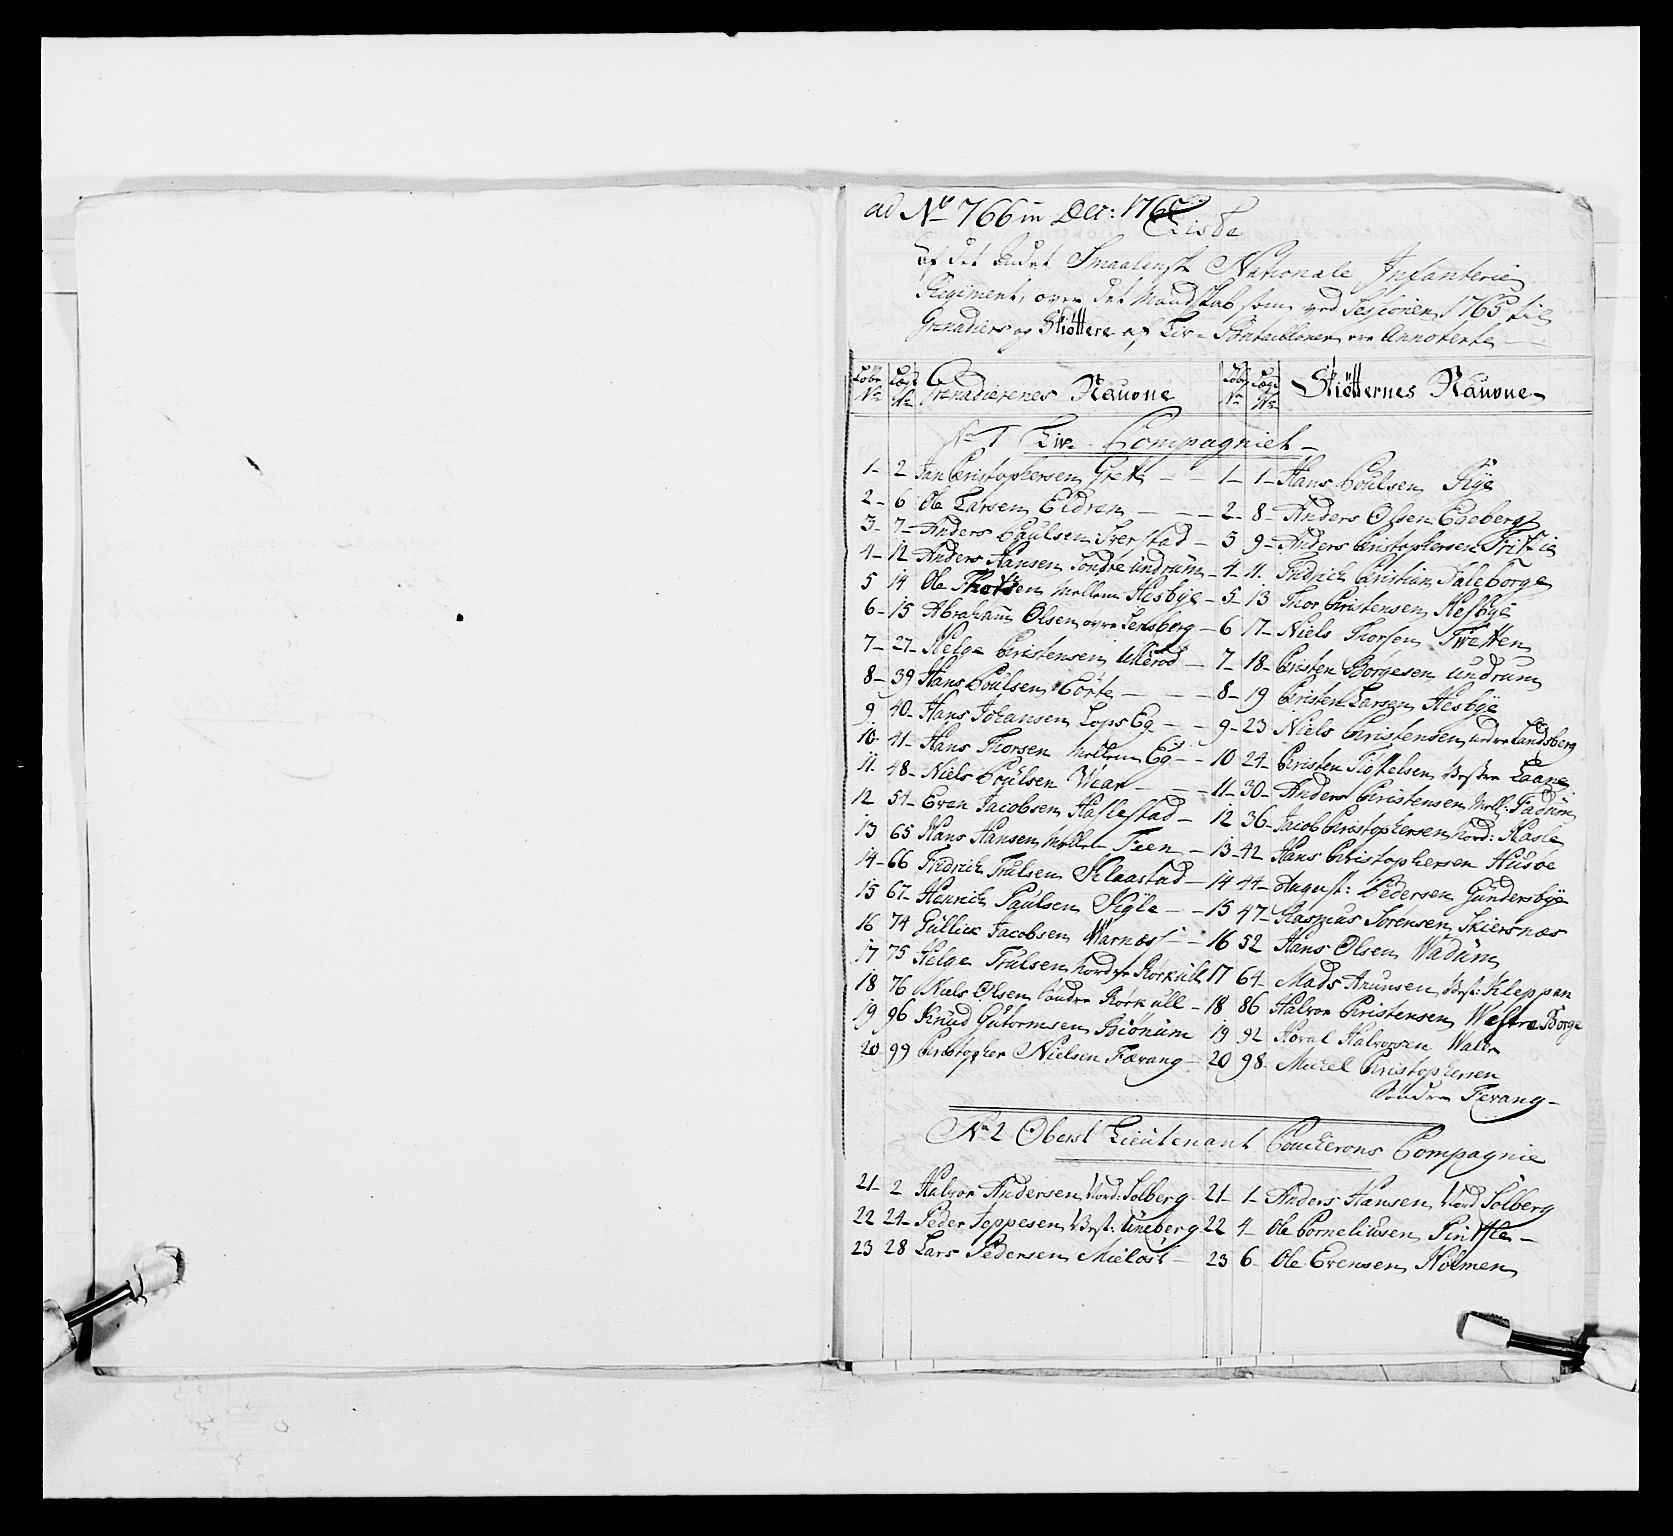 ad No 766 in Decr: 1765
Liste
af det andet Smaalensk Nationale Infanterie
Regiment, over det Mandskab som ved Sessionen 1765 til
Grenadiers og Skiøttere af Liv-Bataillonen ere Annoterte
Løbe No Lægd No Grenadierenes Naune Løbe No Lægd No Skiøtternes Naune
No 1 Liv Compagniet
1 2 Jan Christophersen Greke 1 1 Hans Poulsen Rye
2 6 Ole Larsen Eidren 2 8 Anders Olsen Egeberg
3 7 Anders Paulsen Iverstad 3 9 Anders Christophersen Fritzie
4 12 Anders Hansen Søndre Undrum 4 11 Fridrich Christian Faleborge
5 14 Ole Thorsen Mellem Hesbye 5 13 Thor Christensen Hesbye
6 15 Abraham Olsen øvre Jensberg 6 17 Niels Thorsen Twetten
7 27 Helge Christensen Ullerød 7 18 Christen Borgesen Undrum
8 39 Hans Poulsen Corte 8 19 Christen Larsen Hesbye
9 40 Hans Johansen Lops Eg 9 23 Niels Christensen nedre Landsberg
10 41 Hans Thorsen Mellem Eg 10 24 Christen Tiostelsen Westre Laane
11 48 Niels Poulsen Wear 11 30 Anders Christensen Mell: Fadum
12 54 Even Jacobsen Haslestad 12 36 Jacob Christophersen Nord: Hasle
13 65 Hans Hansen Mellem Feen 13 42 Hans Christophersen Husøe
14 66 Fridrich Trulsen Klaastad 14 44 August: Pedersen Gundersbye
15 67 Henrich Paulsen Kigle 15 47 Rasmus Sørensen Skiersnæs
16 74 Gullick Jacobsen Warnæss 16 52 Hans Olsen Wadum
17 75 Helge Trulsen Nordre Rørkull 17 64 Mads Anunsen West: Kleppan
18 76 Niels Olsen Søndre Rørkull 18 86 Halvor Christensen Westre Borge
19 96 Knud Guttormsen Biønum 19 92 Høral Halvorsen Waler
20 99 Christopher Nielsen Færang 20 98 Michel Christophersen
Søndre Fevang
No 2 Oberst Lieutenant Coucherons Compagnie
21 2 Halvor Andersen Nord: Solberg 21 1 Anders Hansen Nord Solberg
22 24 Peder Jeppesen West: Uneberg 22 4 Ole Corneliusen Pindsle
23 28 Lars Pedersen Mieløst 23 6 Ole Evensen Holmen